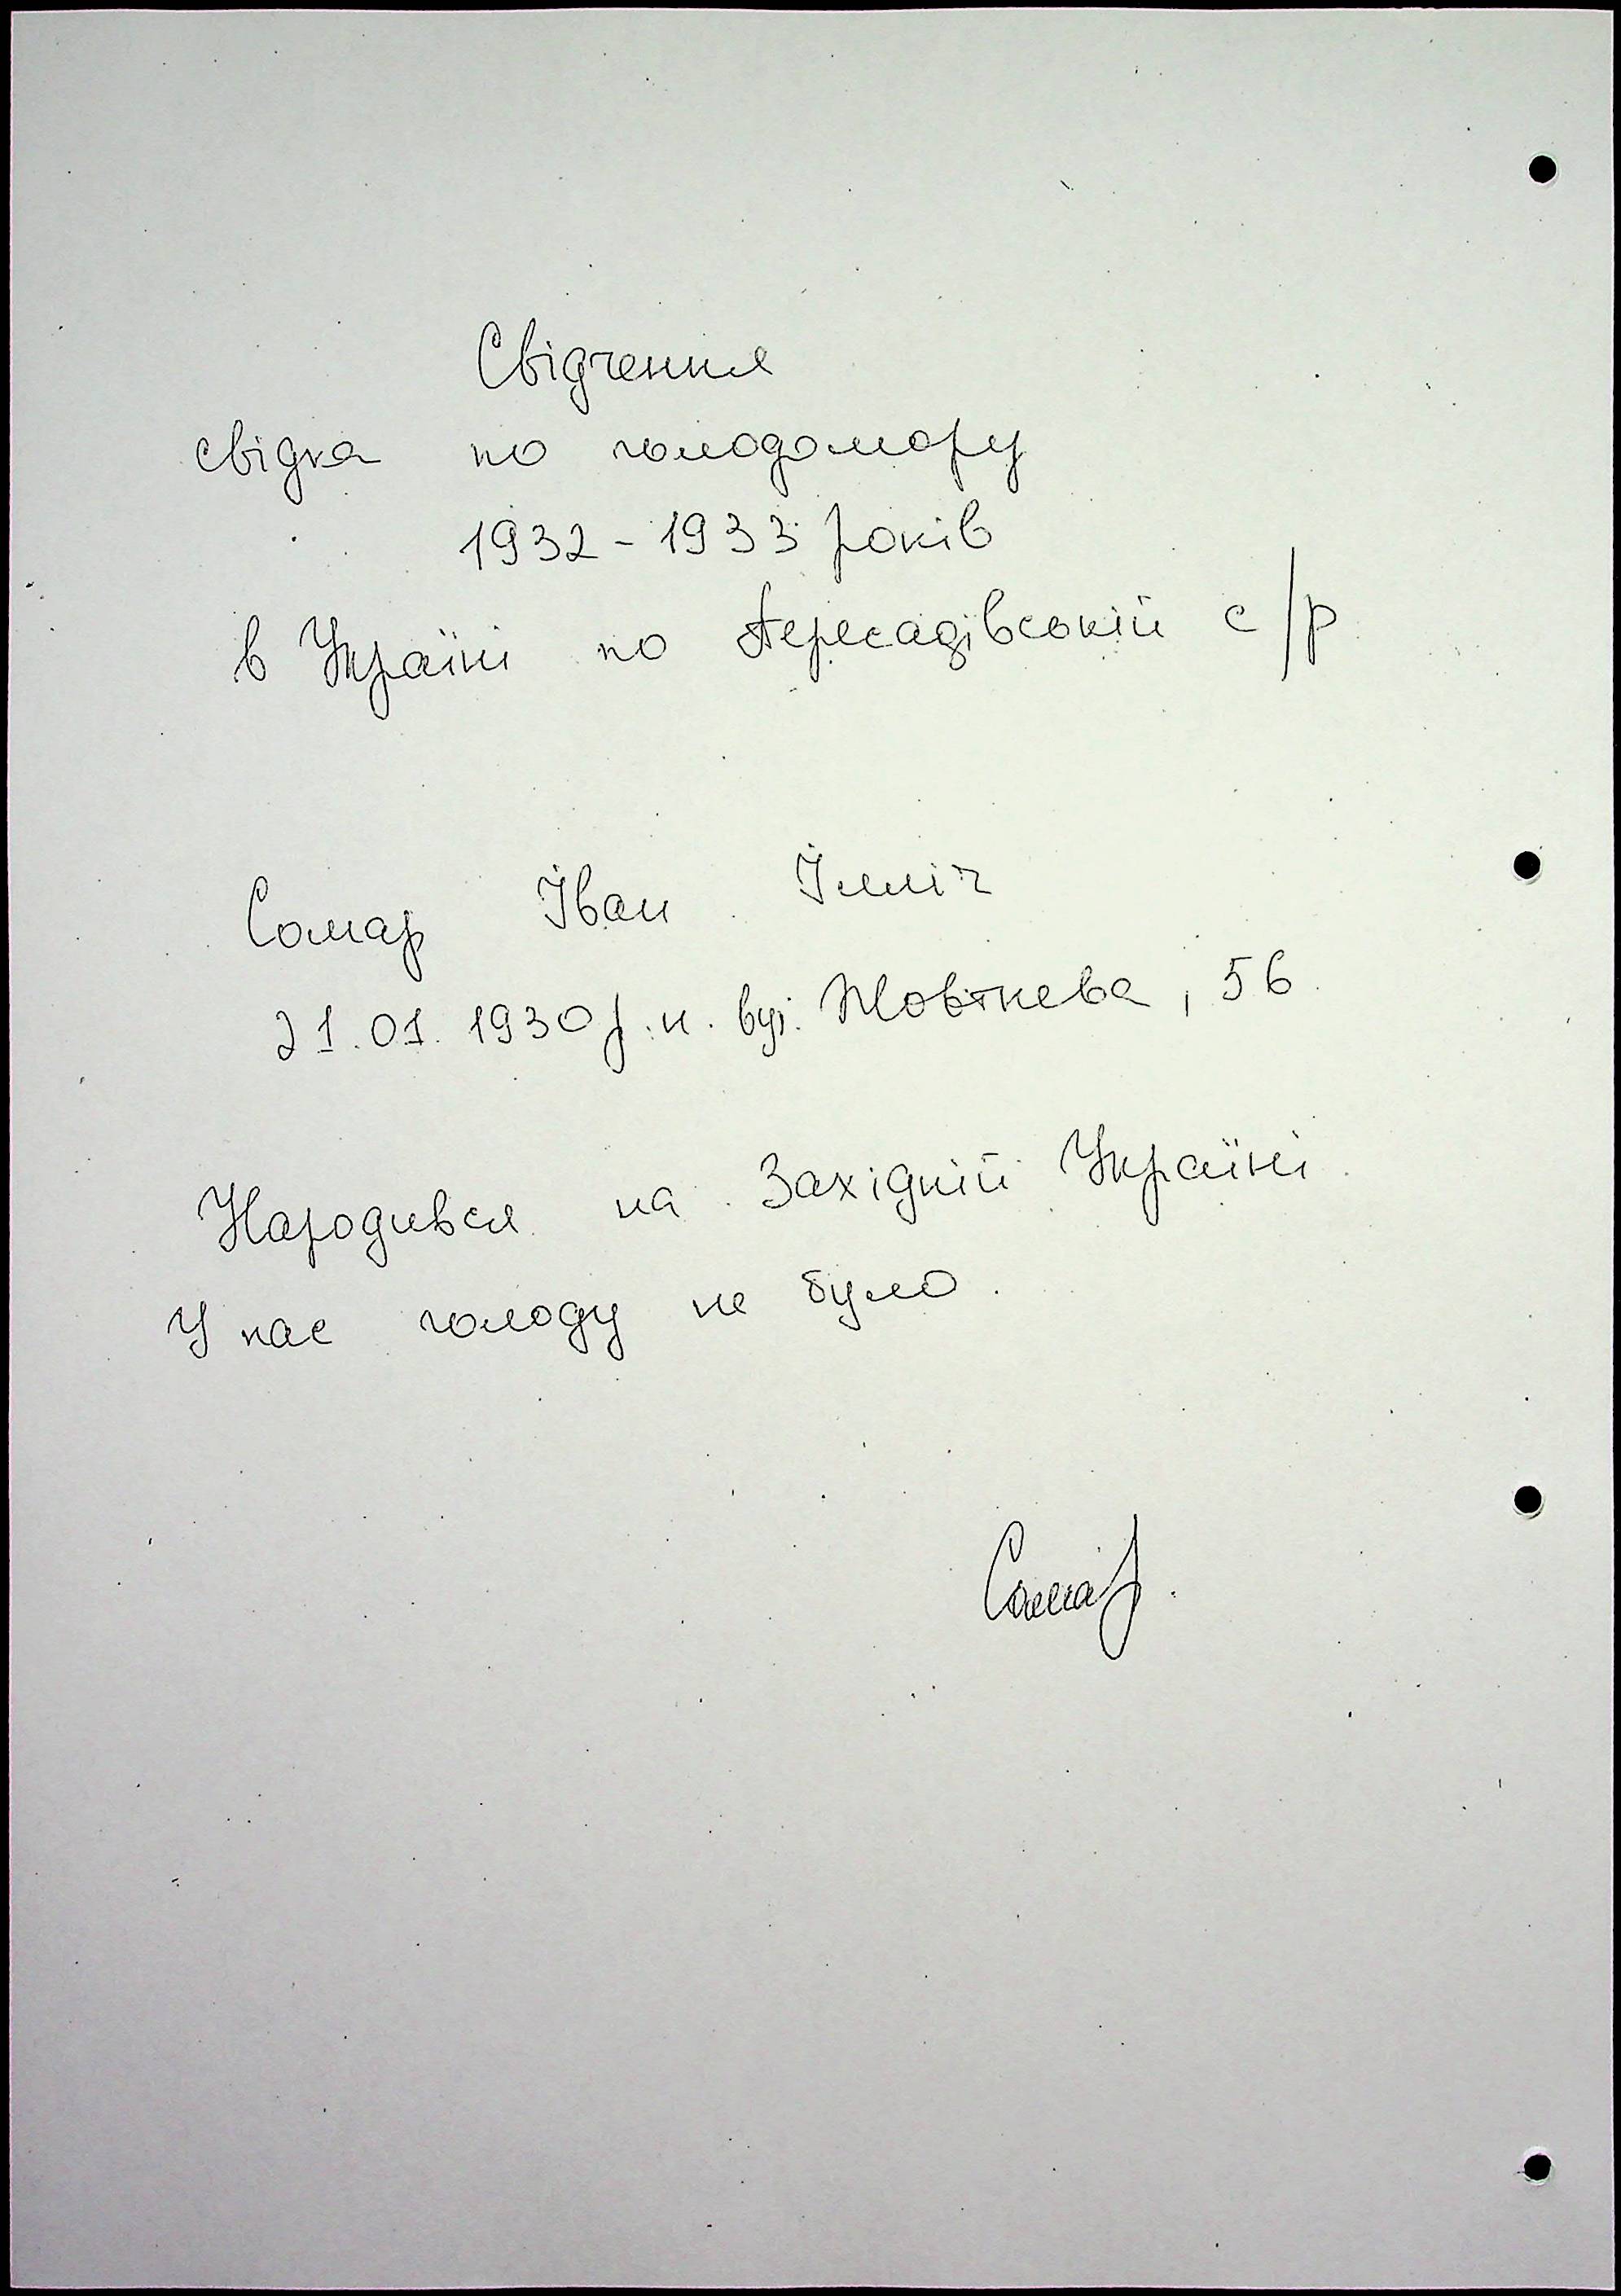 Свідчення
свідка по голодомору
1932-1933 років
в Україні по Пересадівській с/р
Сомар Іван Ілліч
21.01.1930 р.н. вул. Жовтнева, 56
Народився на Західній Україні
У нас голоду не було.
Сомар.